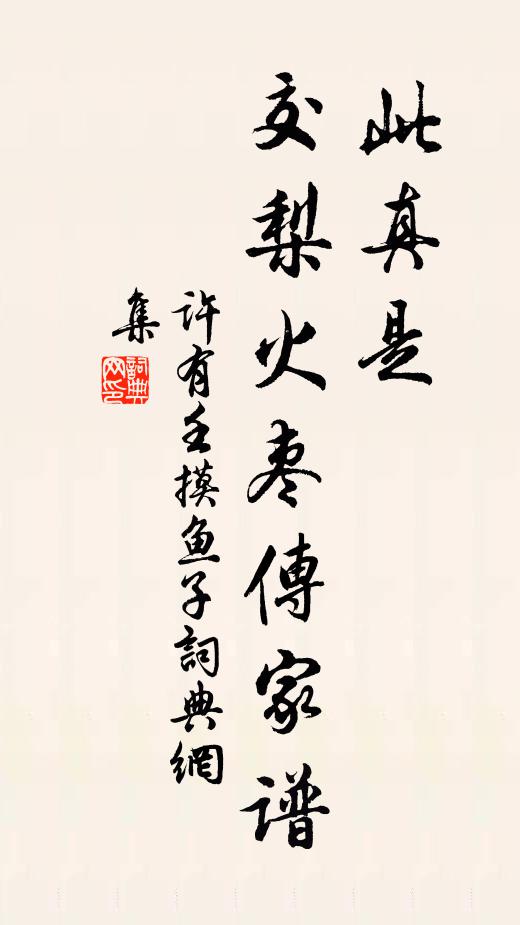 此真是
交梨火枣傳家譜
许有壬摸鱼子詞典網
集
詞典网印